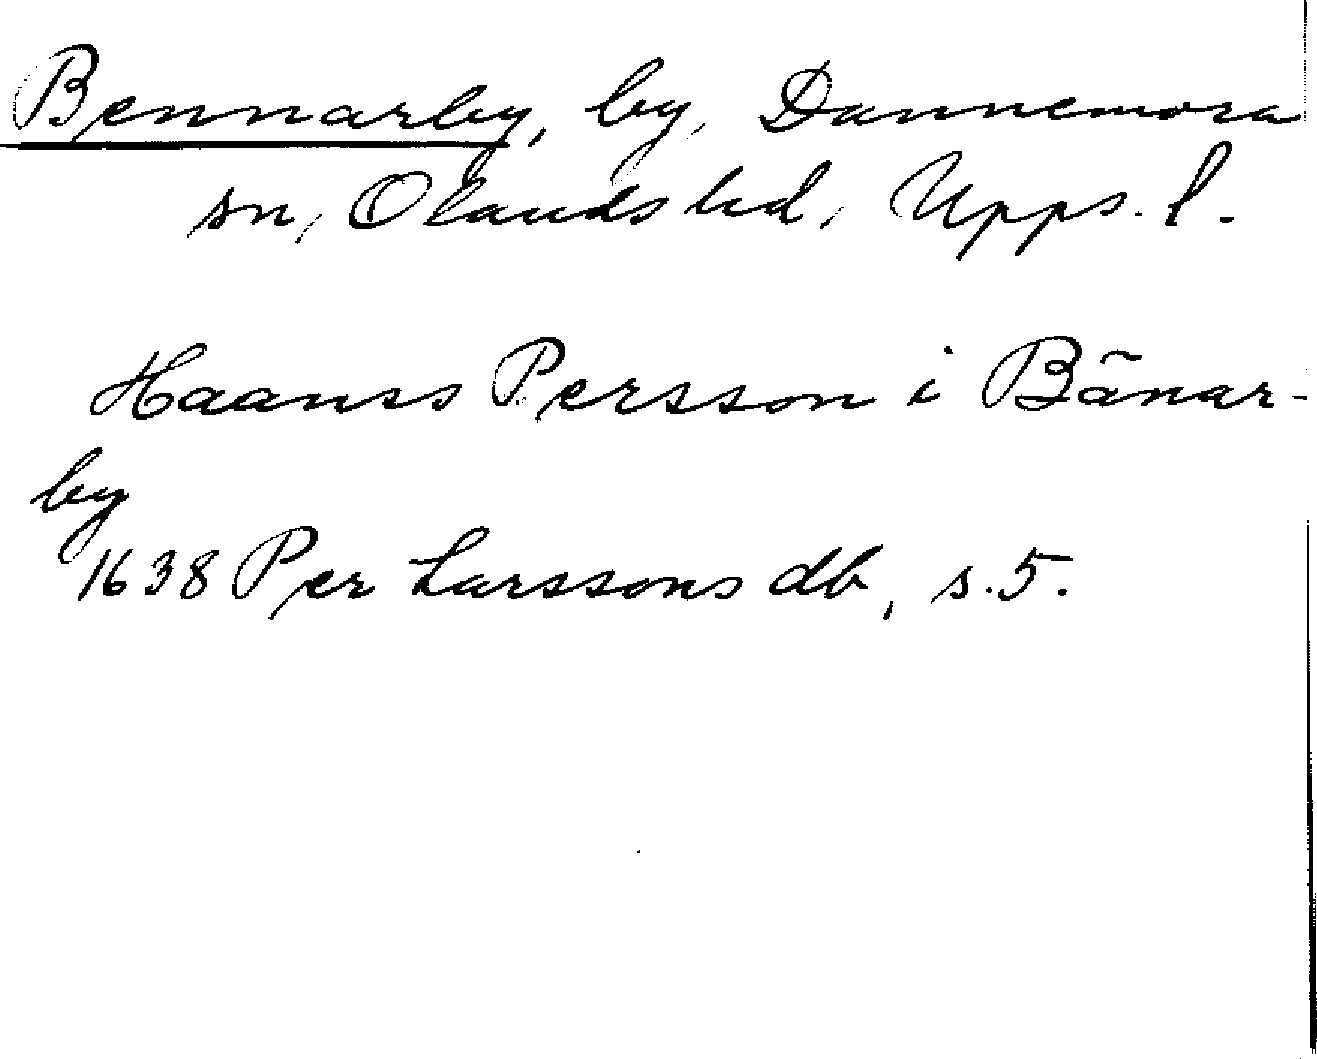 Bennarby, by, Dannemora
sn, Olands hd, Upps. l.
Haanss Persson i Bänar-
by
1638 Per Larssons db, s. 5.